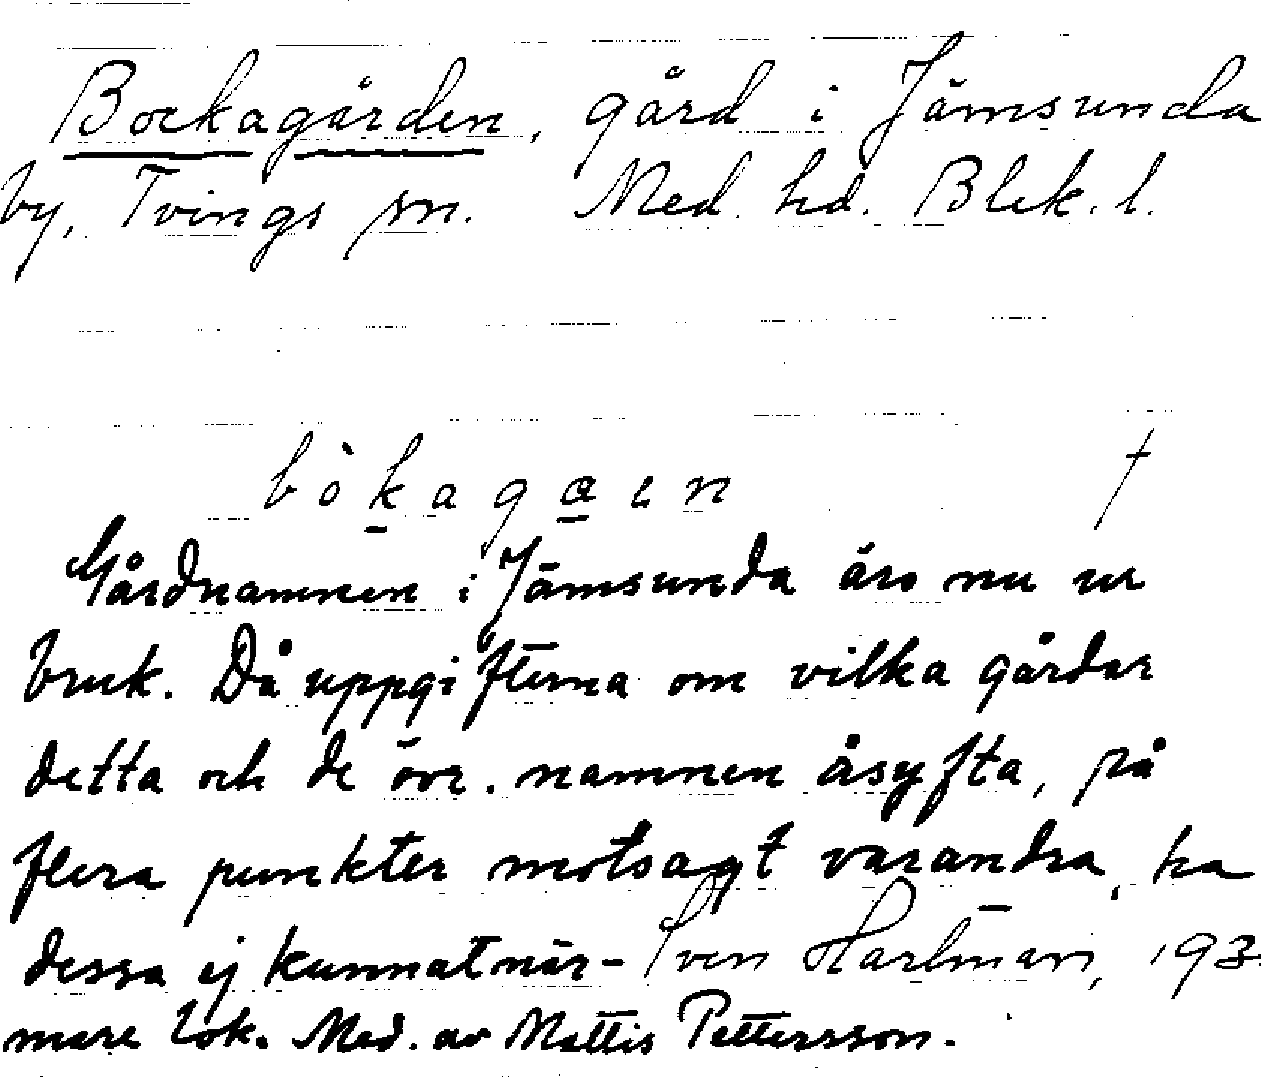 Bockagården, gård i Jämsunda
by, Tvings sn. Med. hd. Blek. l.
bòkagaen †
Gårdnamnen i Jämsunda äro nu ur
bruk. Då uppgifterna om vilka gårdar
detta och de övr. namnen åsyfta, på
flera punkter motsagt varandra, ha
dessa ej kunnat när- Sven Hartman, 193
mare lok. Med. av Mattis Pettersson.